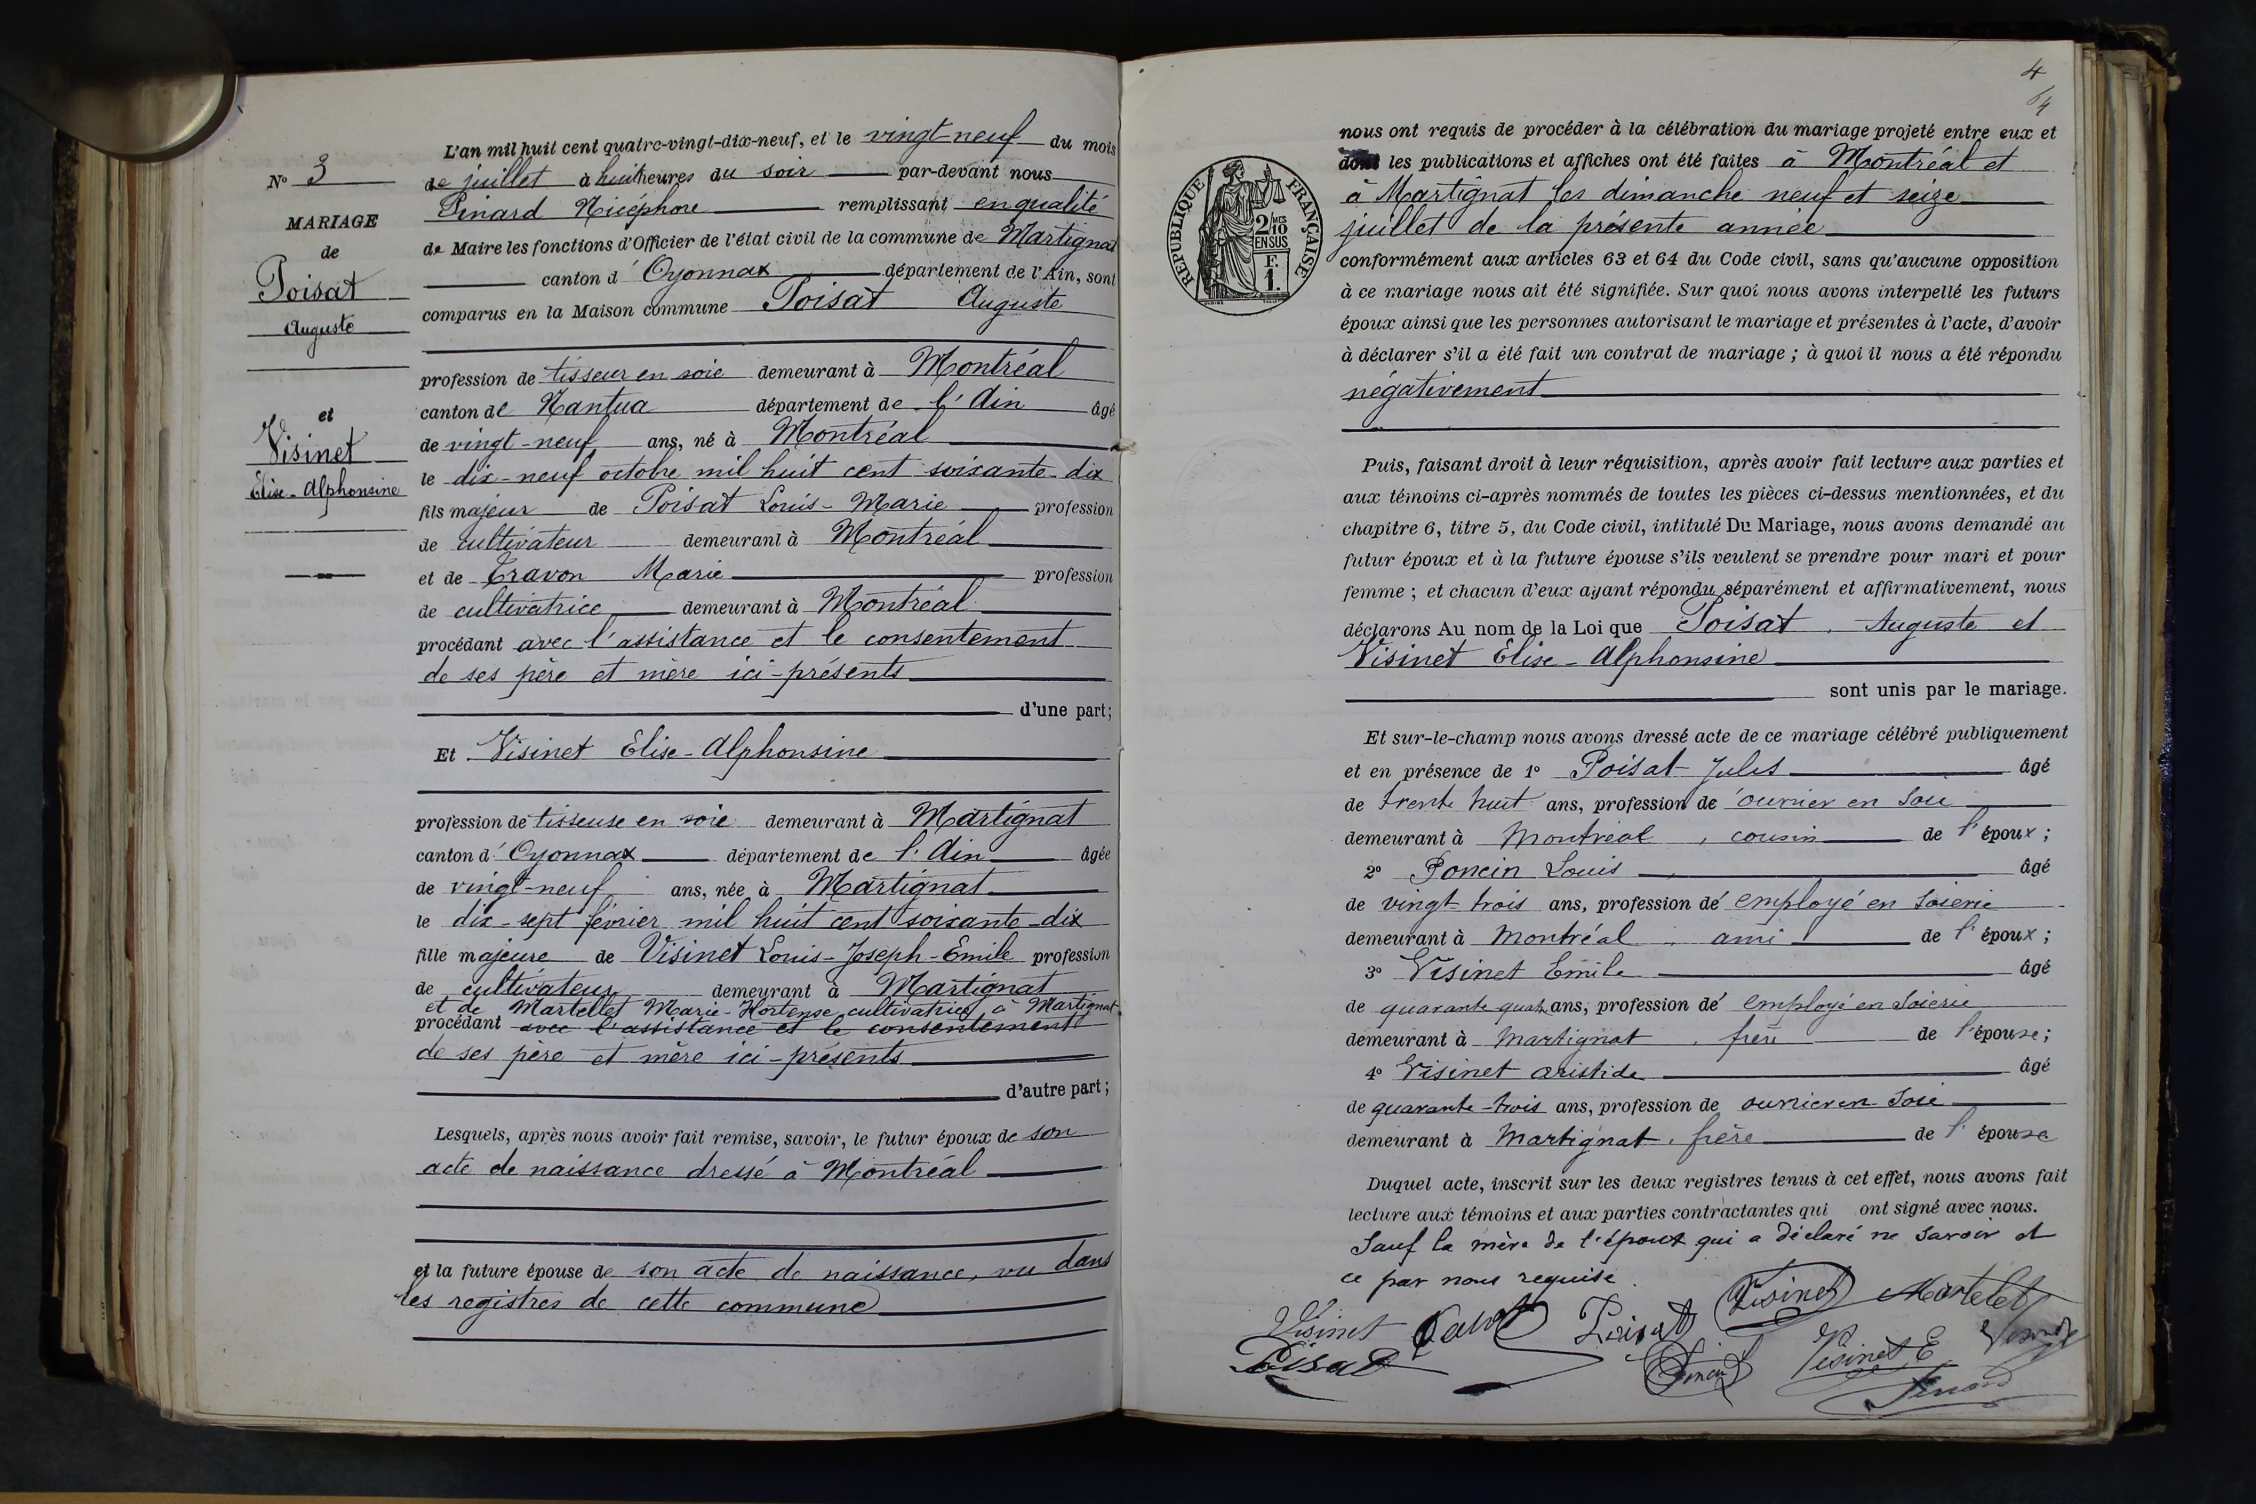 N° 3
MARIAGE
de
Poisat
Auguste
et
Visinet
Elise-Alphonsine
L'an mil huit cent quatre-vingt-dix-neuf, et le vingt-neuf du mois
de juillet à huit heures du soir par-devant nous
Pinard Nicéphore remplissant en qualité
de Maire les fonctions d'Officier de l'état civil de la commune de Martignat
canton d' Oyonnax département de l'Ain, sont
comparus en la Maison commune Poisat Auguste
profession de tisseur en soie demeurant à Montréal
canton de Nantua département de l'Ain âgé
de vingt-neuf ans, né à Montréal
le dix-neuf octobre mil huit cent soixante-dix
fils majeur de Poisat Louis-Marie profession
de cultivateur demeurant à Montréal
et de Travon Marie profession
de cultivatrice demeurant à Montréal
procédant avec l'assistance et le consentement
de ses père et mère ici-présents
d'une part;
Et Visinet Elise-Alphonsine
profession de tisseuse en soie demeurant à Martignat
canton d' Oyonnax département de l'Ain âgée
de vingt-neuf ans, née à Martignat
le dix-sept février mil huit cent soixante-dix
fille majeure de Visinet Louis-Joseph-Emile profession
de cultivateur demeurant à Martignat
et de Martellet Marie-Hortense cultivatrice à Martignat
procédant avec l'assistance et le consentement
de ses père et mère ici-présents
d'autre part;
Lesquels, après nous avoir fait remise, savoir, le futur époux de son
acte de naissance dressé à Montréal
et la future épouse de son acte de naissance, vu dans
les registres de cette commune
4
64
RÉPUBLIQUE FRANÇAISE
2/10 MES
EN SUS
F.
1.
nous ont requis de procéder à la célébration du mariage projeté entre eux et
dont les publications et affiches ont été faites à Montréal et
à Martignat les dimanche neuf et seize
juillet de la présente année
conformément aux articles 63 et 64 du Code civil, sans qu'aucune opposition
à ce mariage nous ait été signifiée. Sur quoi nous avons interpellé les futurs
époux ainsi que les personnes autorisant le mariage et présentes à l'acte, d'avoir
à déclarer s'il a été fait un contrat de mariage ; à quoi il nous a été répondu
négativement
Puis, faisant droit à leur réquisition, après avoir fait lecture aux parties et
aux témoins ci-après nommés de toutes les pièces ci-dessus mentionnées, et du
chapitre 6, titre 5, du Code civil, intitulé Du Mariage, nous avons demandé au
futur époux et à la future épouse s'ils veulent se prendre pour mari et pour
femme ; et chacun d'eux ayant répondu séparément et affirmativement, nous
déclarons Au nom de la Loi que Poisat Auguste et
Visinet Elise-Alphonsine
sont unis par le mariage.
Et sur-le-champ nous avons dressé acte de ce mariage célébré publiquement
et en présence de 1° Poisat Jules âgé
de trente huit ans, profession de ouvrier en soie
demeurant à Montréal, cousin de l'époux ;
2° Poncin Louis âgé
de vingt trois ans, profession de employé en soierie
demeurant à Montréal ami de l'époux ;
3° Visinet Emile âgé
de quarante quatre ans, profession de employé en soierie
demeurant à Martignat, frère de l'épouse ;
4° Visinet Aristide âgé
de quarante-trois ans, profession de ouvrier en soie
demeurant à Martignat, frère de l'épouse
Duquel acte, inscrit sur les deux registres tenus à cet effet, nous avons fait
lecture aux témoins et aux parties contractantes qui ont signé avec nous.
Sauf la mère de l'époux qui a déclaré ne savoir et
ce par nous requise.
Visinet Poisat Visinet Martelet
Poisat Poncin Visinet E
Pinard